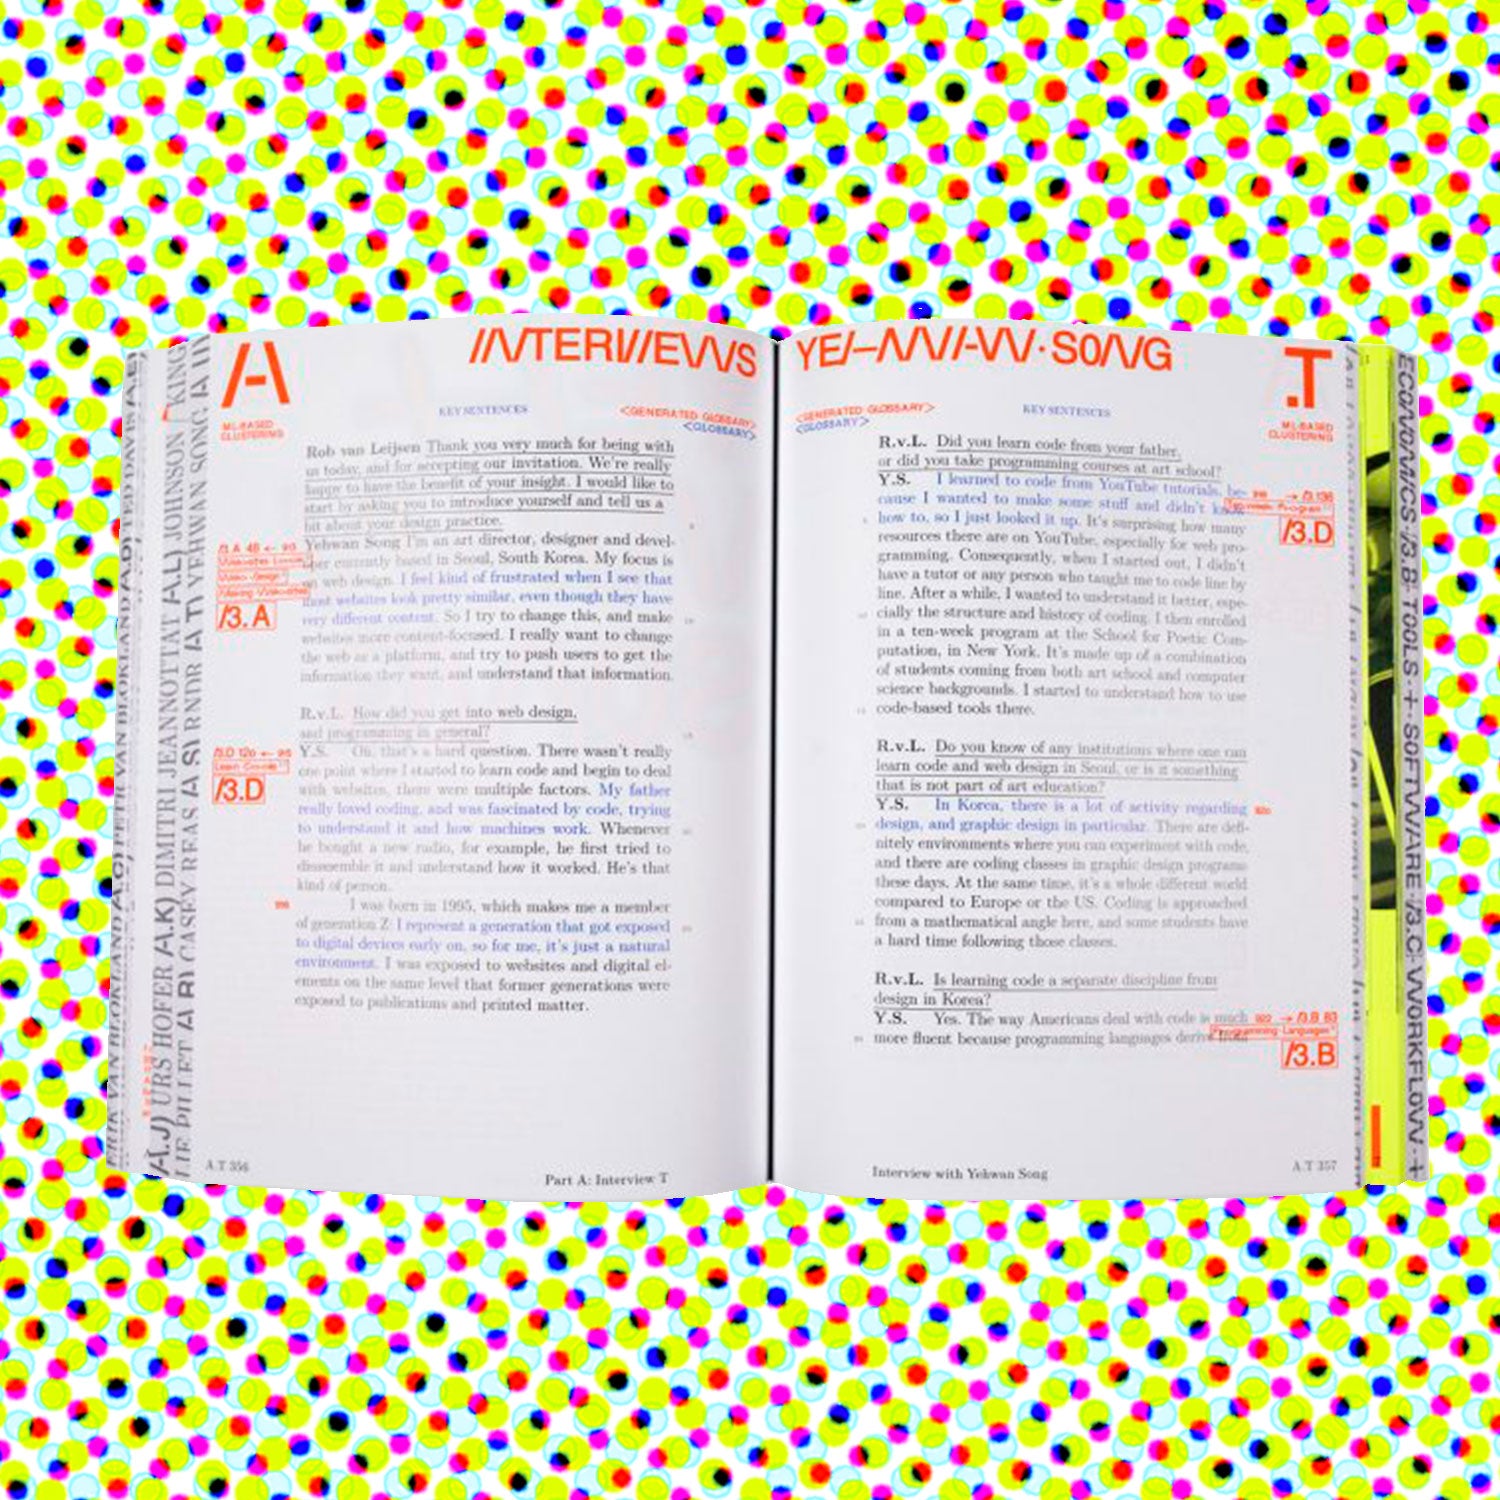 A
INTERVIEWS
ML-BASED
CLUSTERING
KEY SENTENCES
<GENERATED GLOSSARY>
<GLOSSARY>
Rob van Leijsen Thank you very much for being with
us today, and for accepting our invitation. We're really
happy to have the benefit of your insight. I would like to
start by asking you to introduce yourself and tell us a
bit about your design practice.
Yehwan Song I'm an art director, designer and devel-
oper currently based in Seoul, South Korea. My focus is
on web design. I feel kind of frustrated when I see that
most websites look pretty similar, even though they have
very different content. So I try to change this, and make
websites more content-focused. I really want to change
the web as a platform, and try to push users to get the
information they want, and understand that information.
/3.A
R.v.L. How did you get into web design,
and programming in general?
Y.S. Oh, that's a hard question. There wasn't really
one point where I started to learn code and begin to deal
with websites, there were multiple factors. My father
really loved coding, and was fascinated by code, trying
to understand it and how machines work. Whenever
he bought a new radio, for example, he first tried to
disassemble it and understand how it worked. He's that
kind of person.
/3.D
I was born in 1995, which makes me a member
of generation Z. I represent a generation that got exposed
to digital devices early on, so for me, it's just a natural
environment. I was exposed to websites and digital el-
ements on the same level that former generations were
exposed to publications and printed matter.
A.T 356
Part A: Interview T
A.J) URS HOFER A.K) DIMITRI JEANNOTTAT A.L) JOHNSON / KING
A.R) CASEY REAS A.S) RNDR A.T) YEHWAN SONG
YEHWAN SONG
.T
<GENERATED GLOSSARY>
<GLOSSARY>
KEY SENTENCES
ML-BASED
CLUSTERING
R.v.L. Did you learn code from your father,
or did you take programming courses at art school?
Y.S. I learned to code from YouTube tutorials, be-
cause I wanted to make some stuff and didn't know
how to, so I just looked it up. It's surprising how many
resources there are on YouTube, especially for web pro-
gramming. Consequently, when I started out, I didn't
have a tutor or any person who taught me to code line by
line. After a while, I wanted to understand it better, espe-
cially the structure and history of coding. I then enrolled
in a ten-week program at the School for Poetic Com-
putation, in New York. It's made up of a combination
of students coming from both art school and computer
science backgrounds. I started to understand how to use
code-based tools there.
/3.D
R.v.L. Do you know of any institutions where one can
learn code and web design in Seoul, or is it something
that is not part of art education?
Y.S. In Korea, there is a lot of activity regarding
design, and graphic design in particular. There are defi-
nitely environments where you can experiment with code,
and there are coding classes in graphic design programs
these days. At the same time, it's a whole different world
compared to Europe or the US. Coding is approached
from a mathematical angle here, and some students have
a hard time following those classes.
R.v.L. Is learning code a separate discipline from
design in Korea?
Y.S. Yes. The way Americans deal with code is much
more fluent because programming languages derive from
"Programming Languages"
/3.B
Interview with Yehwan Song
A.T 357
ECONOMICS · /3.B TOOLS + SOFTWARE · /3.C WORKFLOW +